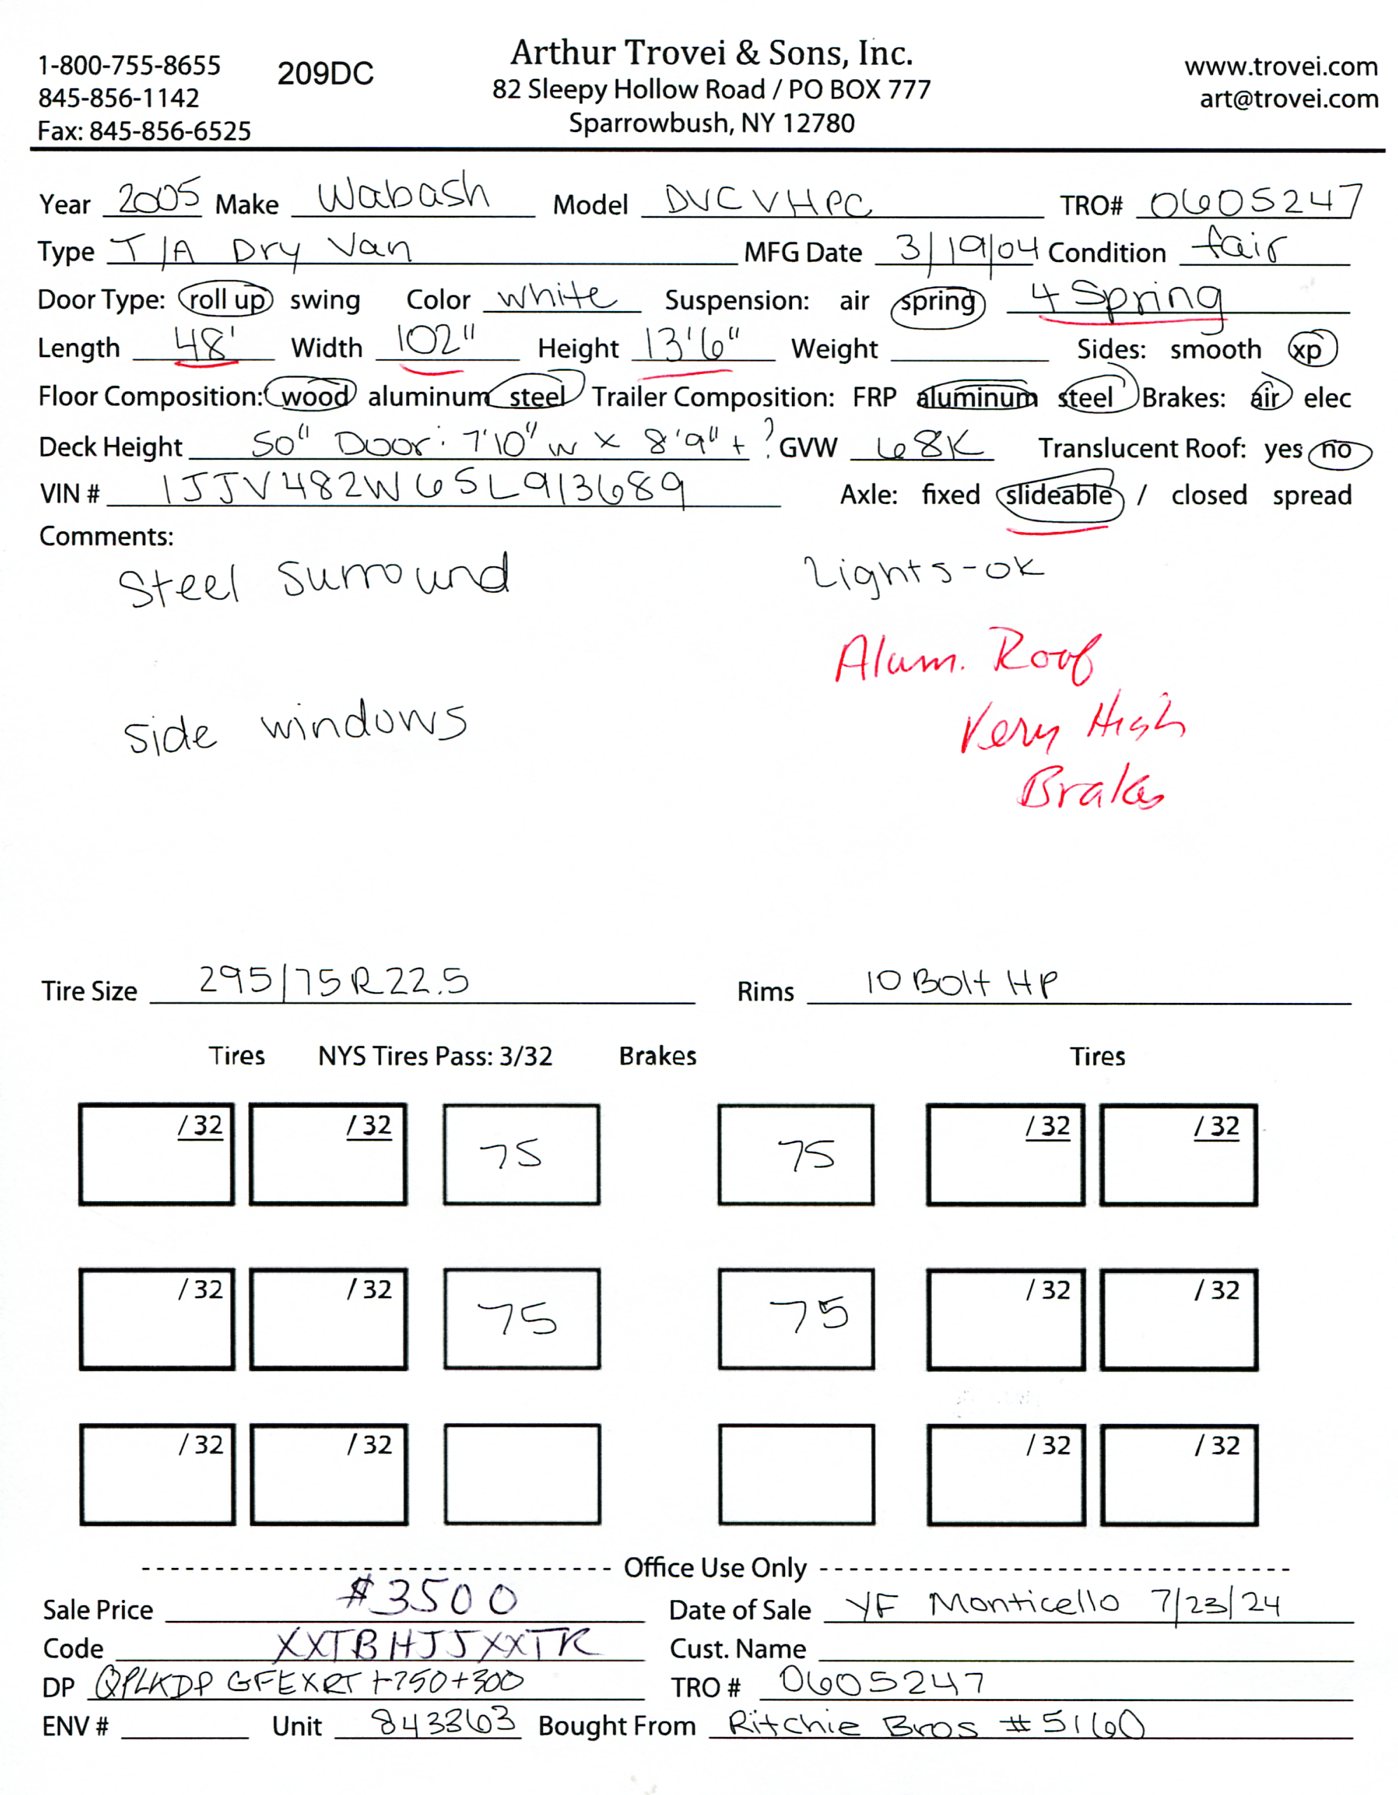 1-800-755-8655 209DC Arthur Trovei & Sons, Inc. www.trovei.com
845-856-1142 82 Sleepy Hollow Road / PO BOX 777 art@trovei.com
Fax: 845-856-6525 Sparrowbush, NY 12780
Year 2005 Make Wabash Model DVCVHPC TRO# 0605247
Type T/A Dry Van MFG Date 3/19/04 Condition fair
Door Type: roll up swing Color white Suspension: air spring 4 Spring
Length 48' Width 102" Height 13'6" Weight Sides: smooth xp
Floor Composition: wood aluminum steel Trailer Composition: FRP aluminum steel Brakes: air elec
Deck Height 50" Door: 7'10" w x 8'9" + ? GVW 68K Translucent Roof: yes no
VIN # 1JJV482W65L913689 Axle: fixed slideable / closed spread
Comments:
Steel surround Lights-ok
Alum. Roof
side windows Very High
Brakes
Tire Size 295/75R22.5 Rims 10 Bolt HP
Tires NYS Tires Pass: 3/32 Brakes Tires
/32 /32 75 75 /32 /32
/32 /32 75 75 /32 /32
/32 /32 /32 /32
Office Use Only
Sale Price $3500 Date of Sale YF Monticello 7/23/24
Code XXTBHJJXXTK Cust. Name
DP QPLKDP GFEXRT +750+300 TRO # 0605247
ENV # Unit 843363 Bought From Ritchie Bros #5160